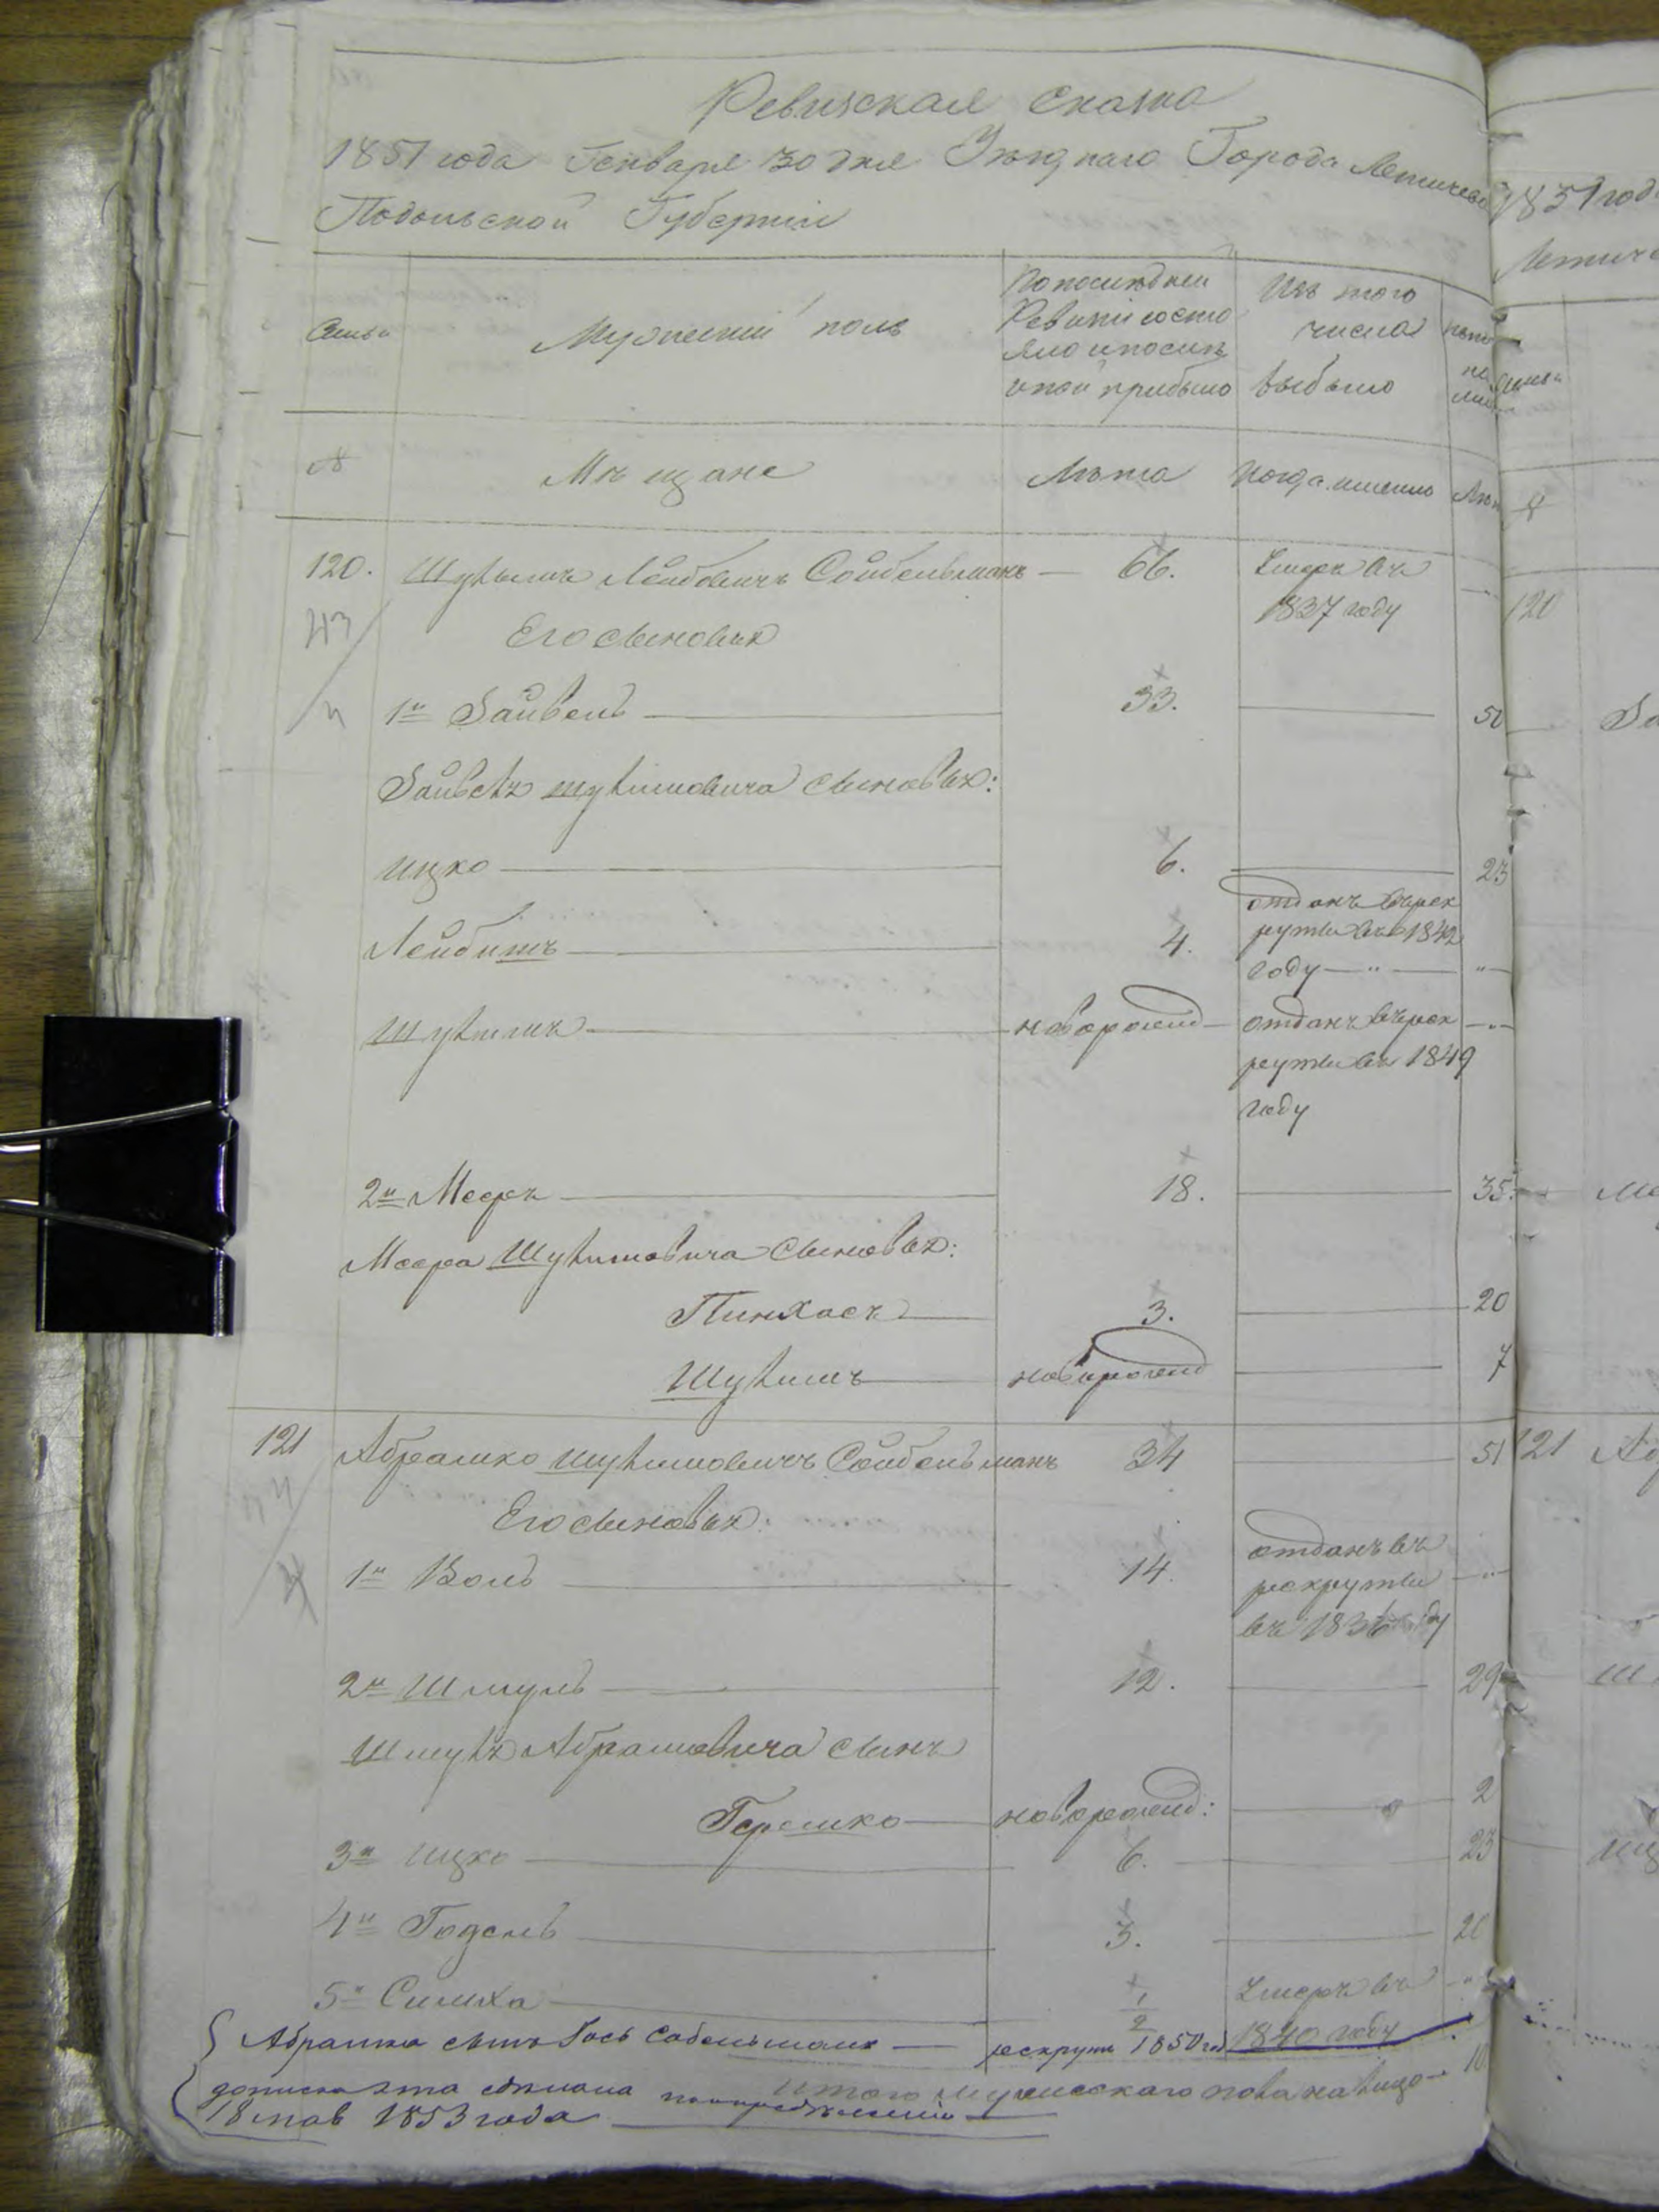 Ревизская Сказка
1851 года Генваря 30 дня Уезднаго Города Летичева
Подольской Губернии
Семьи
Мужеский полъ
По последней
Ревизии состо
яло и после
оной прибыло
Изъ того
числа
выбыло
№
Мѣщане
Лѣта
Когда именно
Лѣта
120. Шулимъ Лейбовичъ Сойбельманъ — 66. Умеръ въ
1837 году
43
Его сыновья
4
1й Зайвель — 33. — 50
Зайвеля Шулимовича сыновья:
Ицко — 6. — 23
Лейбишъ — 4. отданъ врек
руты въ 1842
году — " — "
Шулимъ — новорожд — отданъ врек
руты въ 1849
году
2й Меер — 18. — 35.
Меера Шулимовича сыновья:
Пинхасъ — 3. — 20
Шулимъ — новорожд — 7
121 Абрамко Шулимовичъ Сойбельманъ 34 — 51
44
Его сыновья:
4
1й Волъ — 14. отданъ въ
рекруты
въ 1836 году
2й Шмуль — 12. — 29
Шмуля Абрамовича сынъ
Гершко — новорожд: — 2
3й Ицко — 6. — 23
4й Годель — 3. — 20
5й Симха — 1/2 Умеръ въ
1840 году
Абрамка сынъ Іось Собельманъ — рекрутъ 1850 го
Итого мужескаго пола на лицо — 10
дописка эта сделана по предписанію
18 мая 1853 года
1851 год
Летиче
120
121